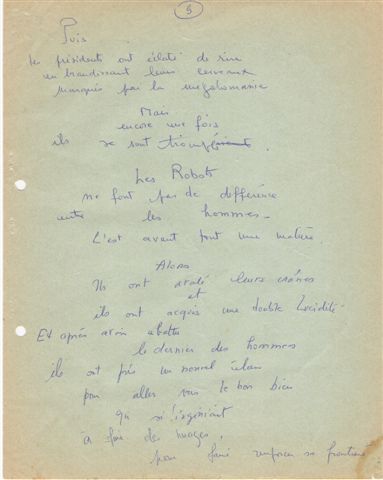 5
Puis
les présidents ont éclaté de rire
en brandissant leurs cerveaux
marqués par la mégalomanie
Mais
encore une fois
ils se sont
Les Robots
ne font pas de différence
entre les hommes -
C'est avant tout une matière
Alors
Ils ont avalé leurs crânes
et
ils ont acquis une double lucidité
Et après avoir abattu
le dernier des hommes
ils ont pris un nouvel élan
pour aller vers le bon Dieu
qui s'ingéniait
à faire des nuages,
pour faire renforcer sa frontière